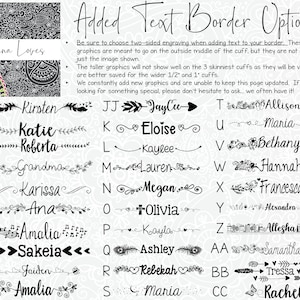 Added Text Border Optio
na Loves
• Be sure to choose two-sided engraving when adding text to your border. The
graphics are meant to go on the outside middle of the cuff, but they are not
just the image shown.
• The taller graphics will not show well on the 3 skinniest cuffs as they will be
are better saved for the wider 1/2" and 1" cuffs.
• We constantly add new graphics and are unable to keep this page updated. If
looking for something special, please don't hesitate to ask... we often have it!
Kirsten
Katie
Roberta
Grandma
Karissa
Ana
Amalia
Sakeia
Jaiden
Amalia
JJ JayCee
K Eloise
L Kaylee
M Lauren
N Megan
O Olivia
P Kayla
Q Ashley
R Rebekah
S Maria
T Allison
U Maria
V Bethany
W Hannah
X Francesca
Y
Z Allesha
AA Samantha
BB Tressa
CC Rachel